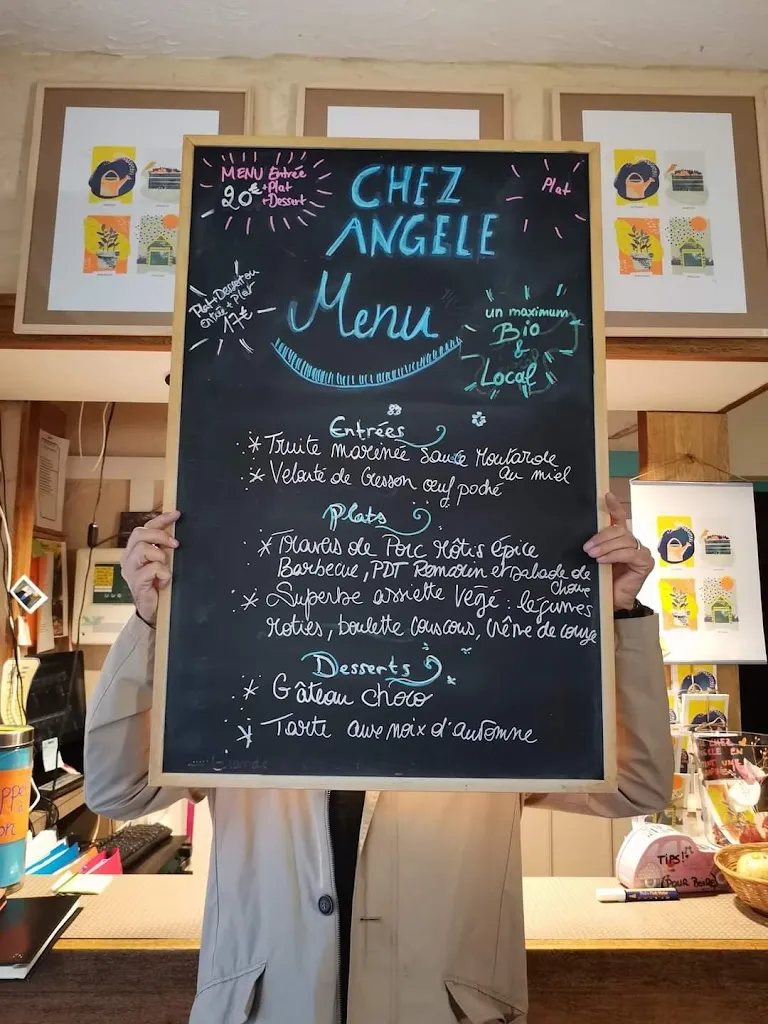 MENU Entrée
20€ +Plat
+Dessert
CHEZ
ANGELE
Plat
Plat+Dessert ou
entrée+Plat
17€
Menu
un maximum
Bio
&
Local
Entrées
* Truite marinée sauce Moutarde
au miel
* Velouté de Cresson œuf poché
Plats
* Travers de Porc Rôtis épice
Barbecue, PDT Romarin et salade de
choux
* Superbe assiette Végé : légumes
Roties, boulette couscous, crème de courge
Desserts
* Gâteau choco
* Tarte aux noix d'automne
TIPS!
POUR BOIRE